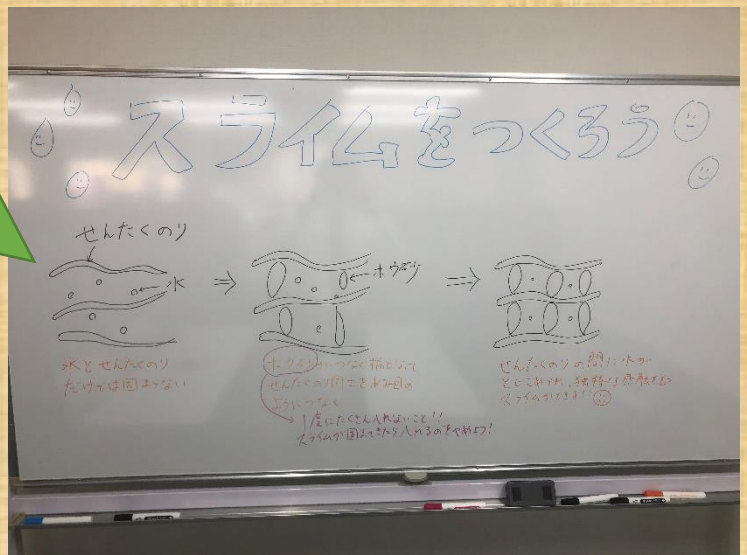 スライムをつくろう
せんたくのり
水
ホウ砂
水とせんたくのり
だけでは固まらない
つなぐ
せんたくのり同士をあみ目の
ようにつなぐ
1度にたくさん入れないこと!!
スライムが固まってきたら入れるのをやめよう!
せんたくのりの間に水が
とじこめられ、独特な感触をもつ
スライムができる!